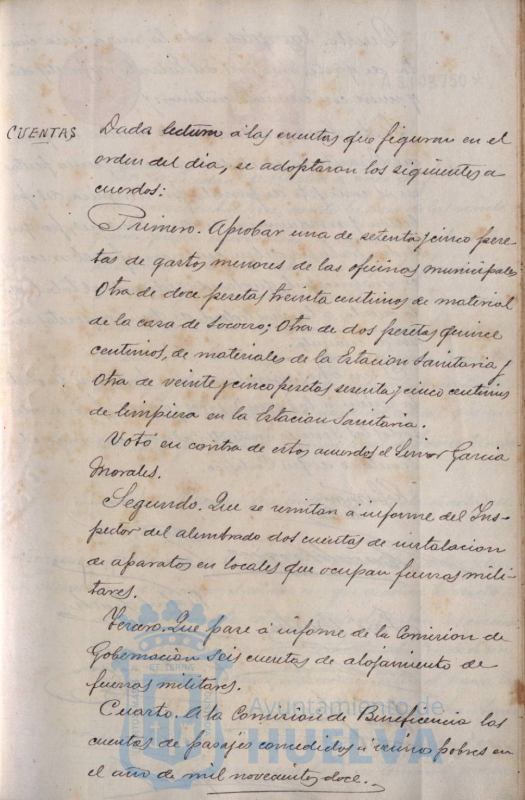 CUENTAS
Dada lectura á las cuentas que figuran en el
orden del dia, se adoptaron los siguientes a
cuerdos:
Primero. Aprobar una de setenta y cinco pese-
tas de gastos menores de las oficinas municipales
Otra de doce pesetas treinta centimos de material
de la casa de Socorro; Otra de dos pesetas quince
centimos, de materiales de la Estacion Sanitaria y
Otra de veinte y cinco pesetas sesenta y cinco centimos
de limpieza en la Estacion Sanitaria.
Votó en contra de estos acuerdos el Señor Garcia
Morales.
Segundo. Que se remitan á informe del Ins-
pector del alumbrado dos cuentas de instalacion
de aparatos en locales que ocupan fuerzas mili-
tares.
Tercero. Que pase á informe de la Comision de
Gobernación seis cuentas de alojamiento de
fuerzas militares.
Cuarto. A la Comision de Beneficencia las
cuentas de pasajes concedidos á vecinos pobres en
el año de mil novecientos doce.
Ayuntamiento de
HUELVA